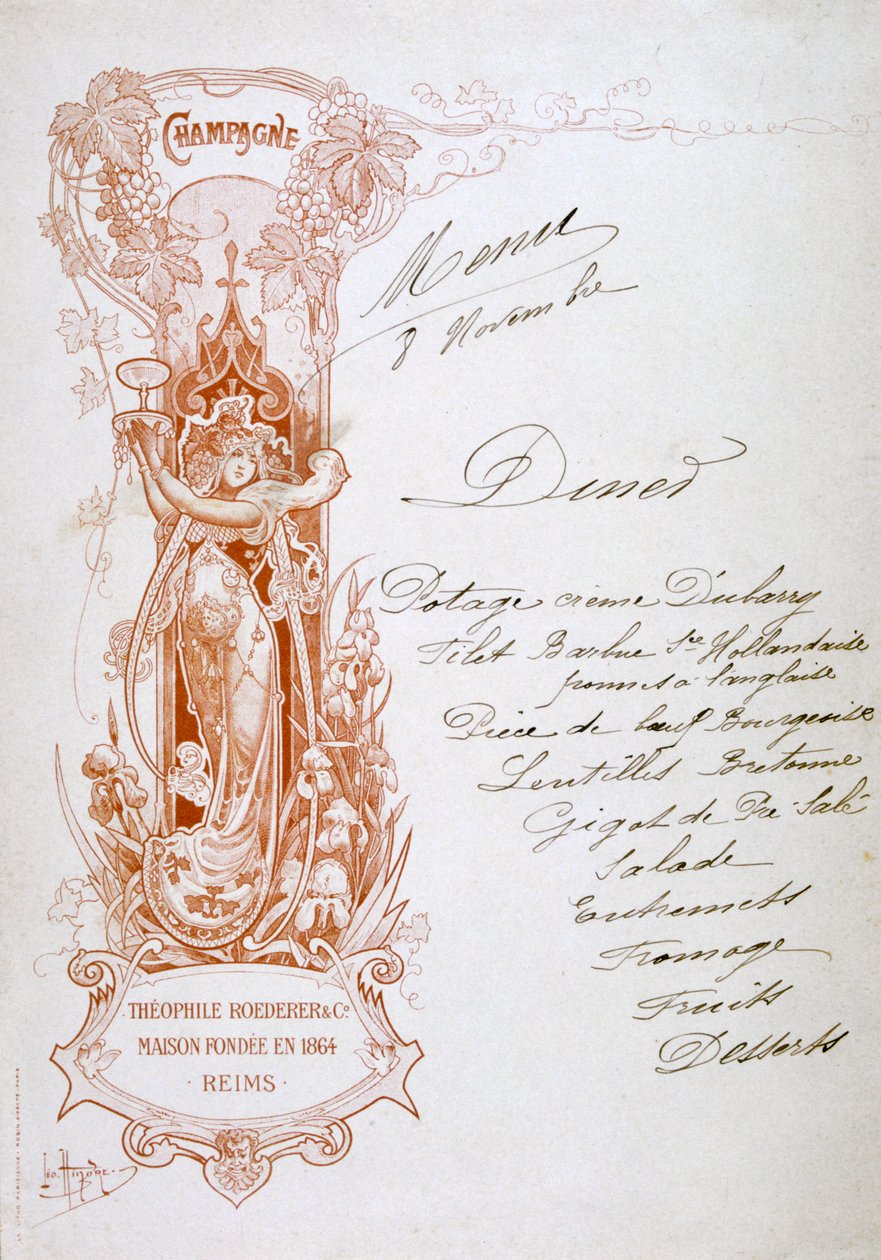 CHAMPAGNE
Menu
8 Novembre
Diner
Potage crème Dubarry
Filet Barbue Sce Hollandaise
pommes à l'anglaise
Pièce de bœuf Bourgeoise
Lentilles Bretonne
Gigot de Pré-Salé
Salade
Entremets
Fromage
Fruits
Desserts
THÉOPHILE ROEDERER & Co.
MAISON FONDÉE EN 1864
· REIMS ·
LA LITHO PARISIENNE - ROBIN
PARIS
LÉO.